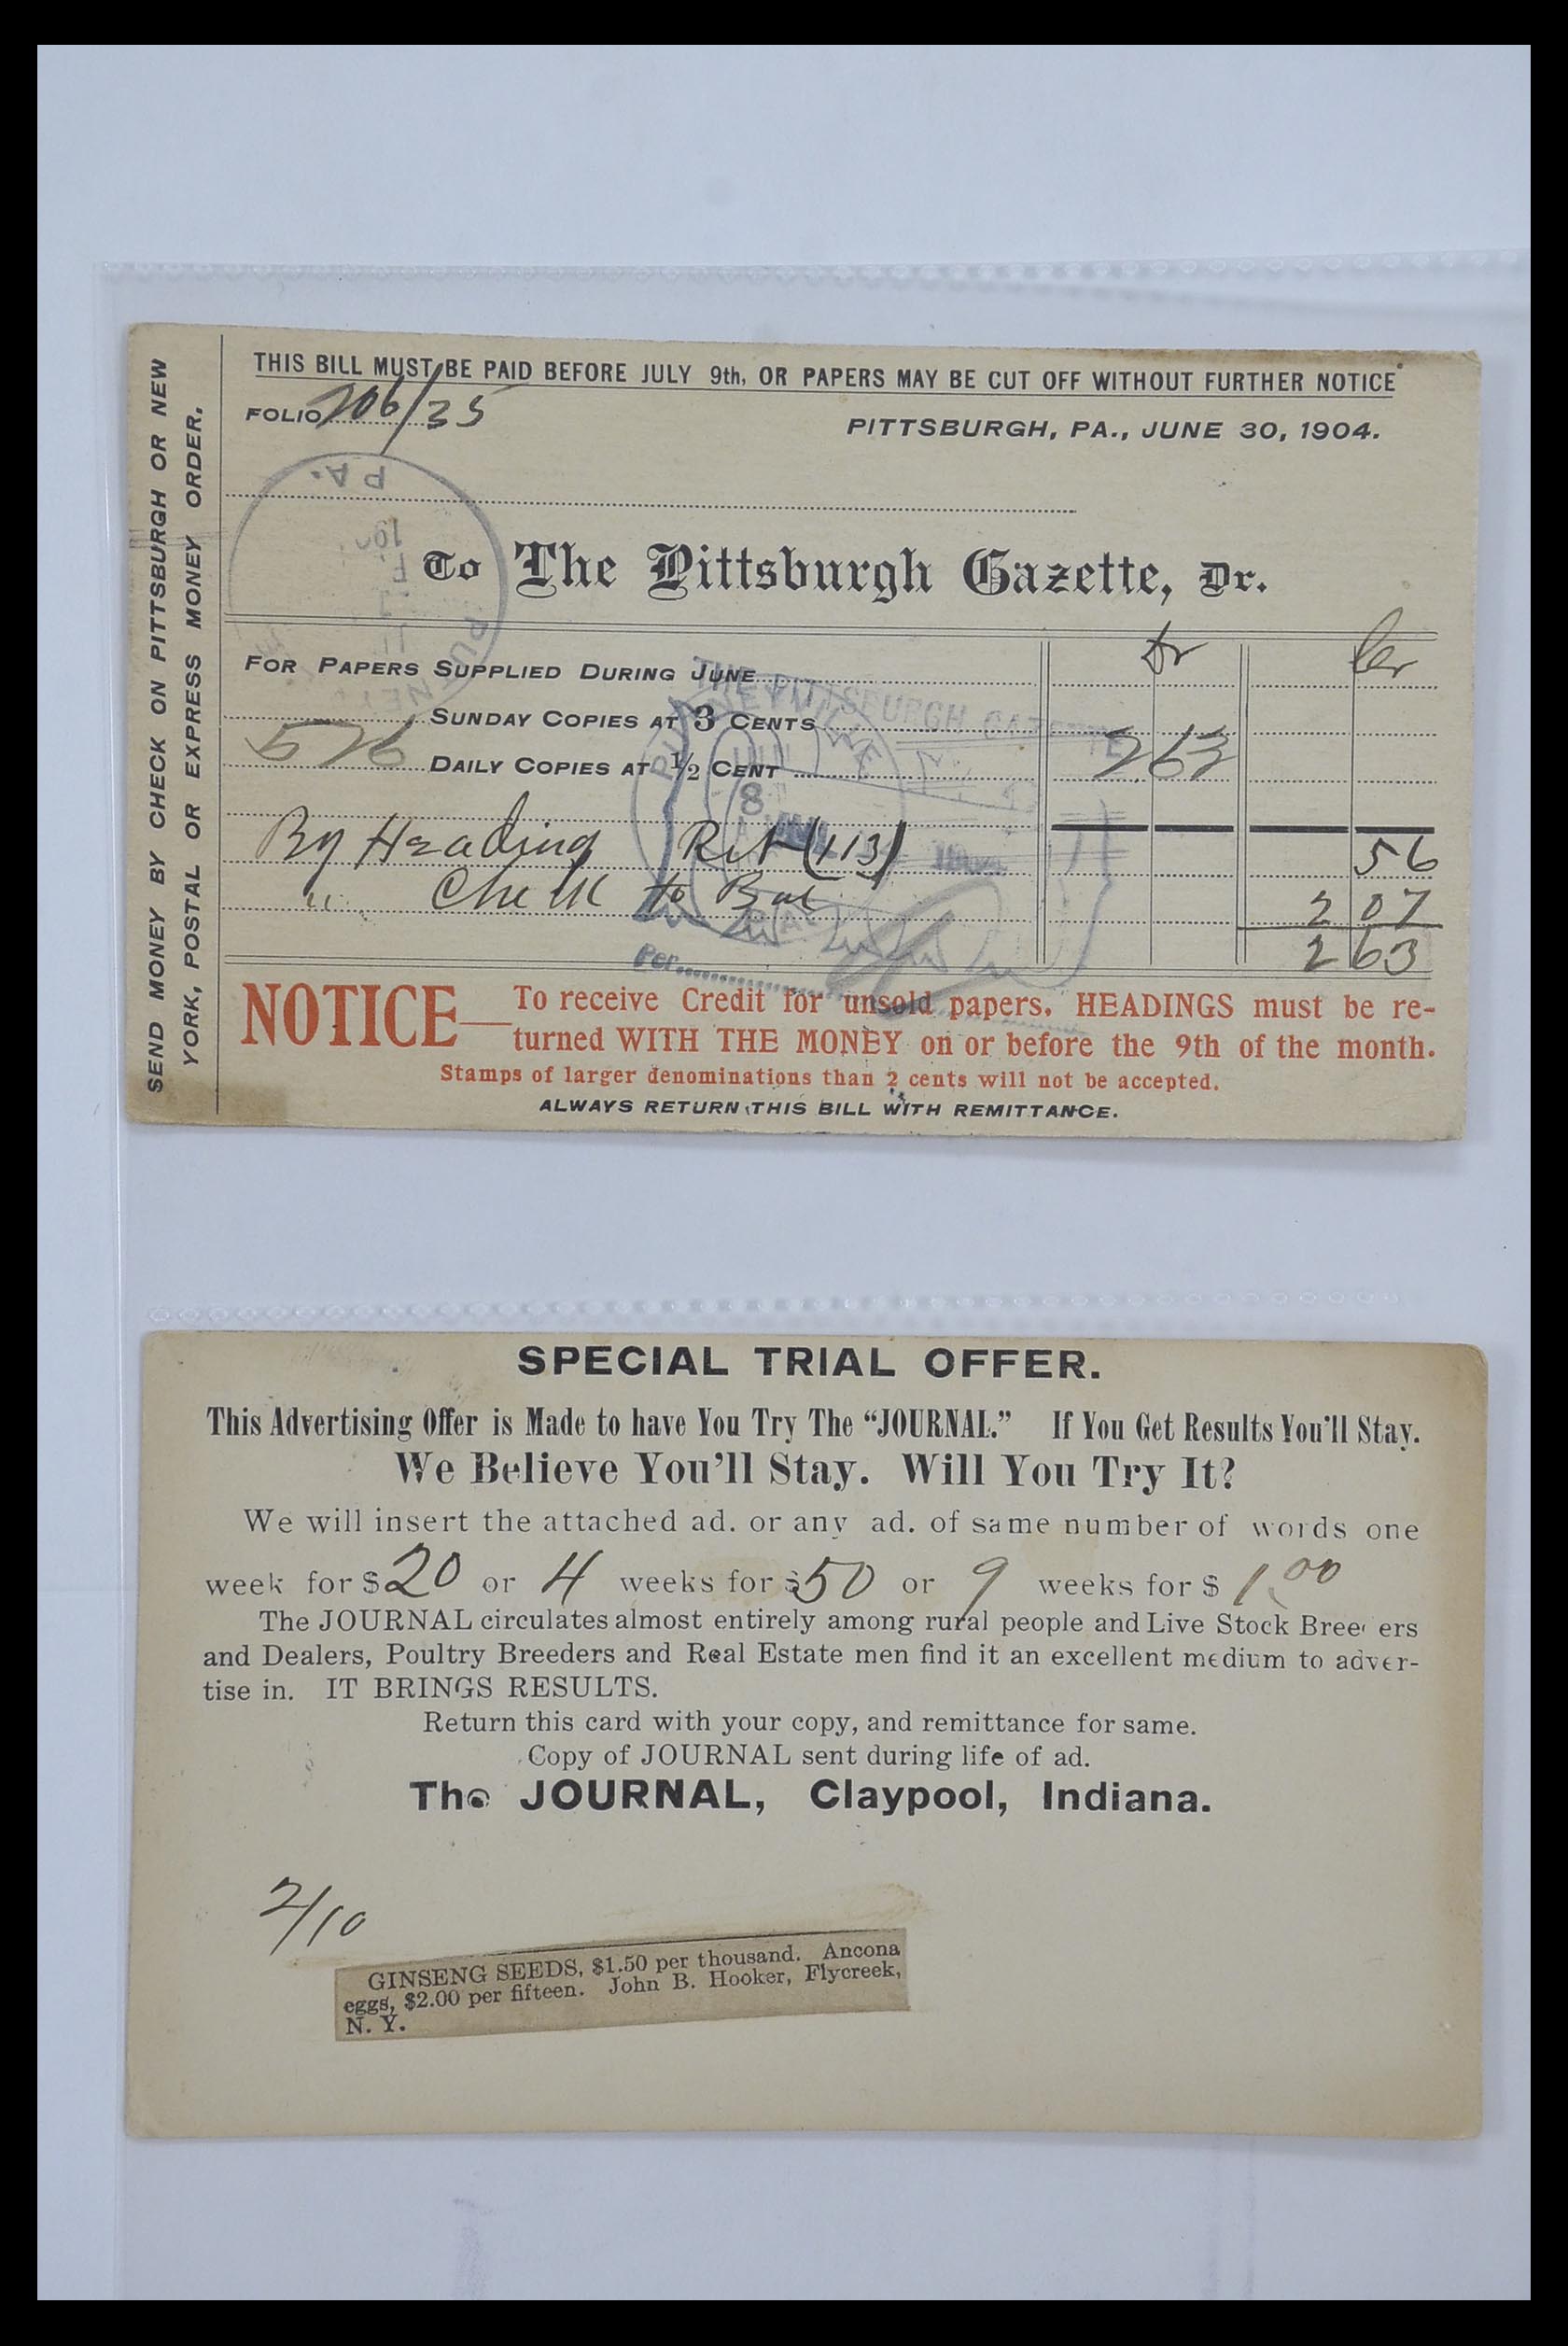 SEND MONEY BY CHECK ON PITTSBURGH OR NEW
YORK, POSTAL OR EXPRESS MONEY ORDER.
THIS BILL MUST BE PAID BEFORE JULY 9th, OR PAPERS MAY BE CUT OFF WITHOUT FURTHER NOTICE
FOLIO 206/35
PITTSBURGH, PA., JUNE 30, 1904.
PA.
To The Pittsburgh Gazette, Dr.
Dr Cr
FOR PAPERS SUPPLIED DURING JUNE
SUNDAY COPIES AT 3 CENTS
526 DAILY COPIES AT 1/2 CENT 2 63
THE PITTSBURGH GAZETTE
By Heading Ret (113) 56
" Check to Bal 2 07
2 63
Per
NOTICE—To receive Credit for unsold papers, HEADINGS must be re-
turned WITH THE MONEY on or before the 9th of the month.
Stamps of larger denominations than 2 cents will not be accepted.
ALWAYS RETURN THIS BILL WITH REMITTANCE.
SPECIAL TRIAL OFFER.
This Advertising Offer is Made to have You Try The “JOURNAL.” If You Get Results You'll Stay.
We Believe You'll Stay. Will You Try It?
We will insert the attached ad. or any ad. of same number of words one
week for $20 or 4 weeks for $50 or 9 weeks for $ 1.00
The JOURNAL circulates almost entirely among rural people and Live Stock Bree ers
and Dealers, Poultry Breeders and Real Estate men find it an excellent medium to adver-
tise in. IT BRINGS RESULTS.
Return this card with your copy, and remittance for same.
Copy of JOURNAL sent during life of ad.
The JOURNAL, Claypool, Indiana.
2/10
GINSENG SEEDS, $1.50 per thousand. Ancona
eggs, $2.00 per fifteen. John B. Hooker, Flycreek,
N. Y.